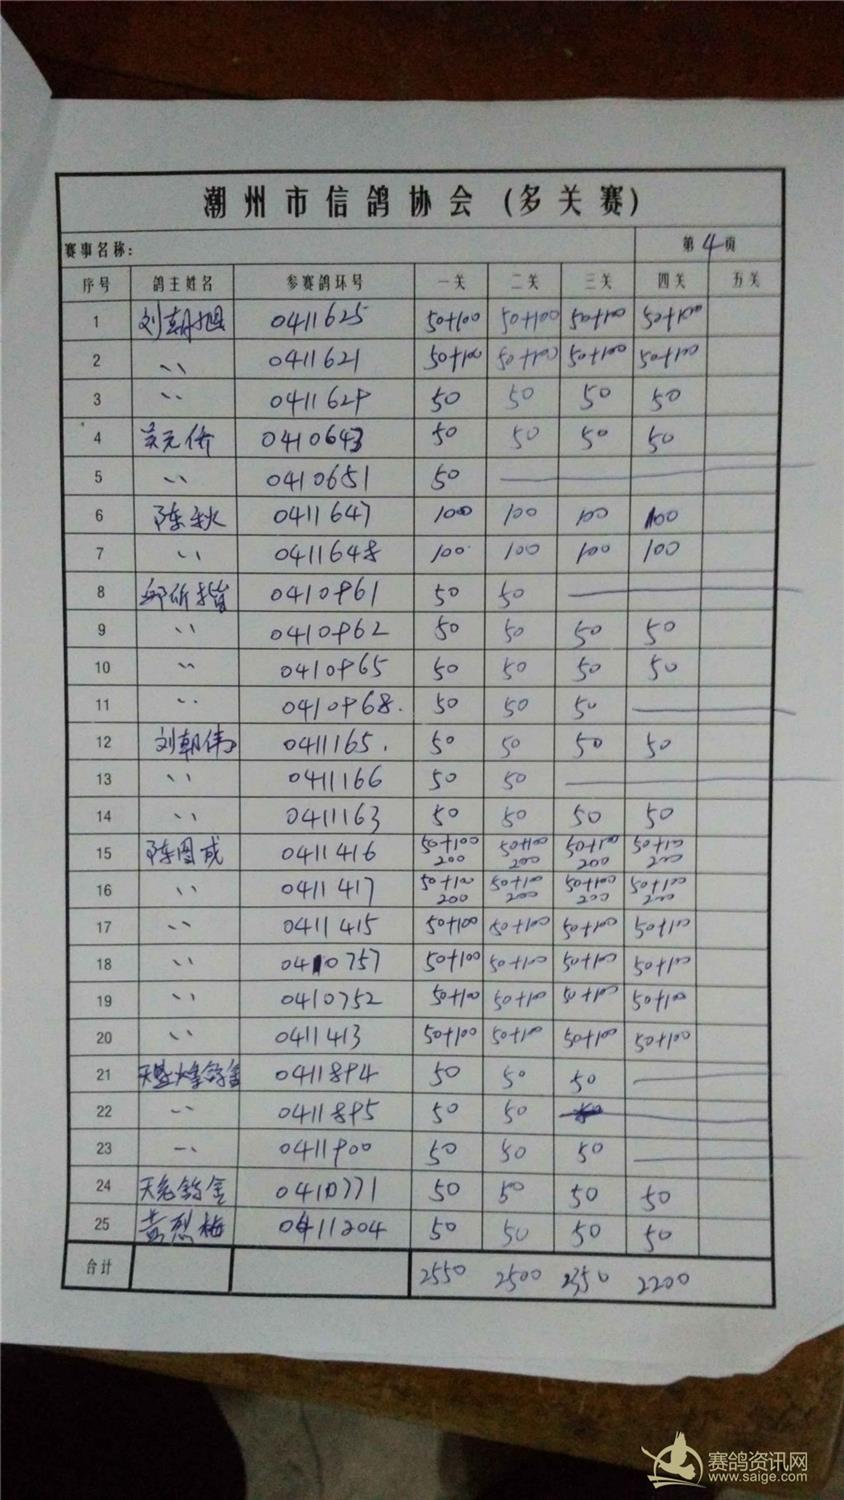 潮州市信鸽协会(多关赛)
赛事名称: 第4页
序号 鸽主姓名 参赛鸽环号 一关 二关 三关 四关 五关
1 刘朝旭 0411625 50+100 50+100 50+100 50+100
2 〃 0411621 50+100 50+100 50+100 50+100
3 〃 0411629 50 50 50 50
4 吴元侨 0410643 50 50 50 50
5 〃 0410651 50
6 陈秋 0411647 100 100 100 100
7 〃 0411648 100 100 100 100
8 0410961 50 50
9 〃 0410962 50 50 50 50
10 〃 0410965 50 50 50 50
11 〃 0410968. 50 50 50
12 刘朝伟 0411165. 50 50 50 50
13 〃 0411166 50 50
14 〃 0411163 50 50 50 50
15 陈图成 0411416 50+100 200 50+100 200 50+100 200 50+100 200
16 〃 0411417 50+100 200 50+100 200 50+100 200 50+100 200
17 〃 0411415 50+100 50+100 50+100 50+100
18 〃 0410757 50+100 50+100 50+100 50+100
19 〃 0410752 50+100 50+100 50+100 50+100
20 〃 0411413 50+100 50+100 50+100 50+100
21 0411894 50 50 50
22 〃 0411895 50 50
23 〃 0411900 50 50 50
24 0410771 50 50 50 50
25 黄烈梅 0411204 50 50 50 50
合计 2550 2500 2350 2200
赛鸽资讯网
www.saige.com